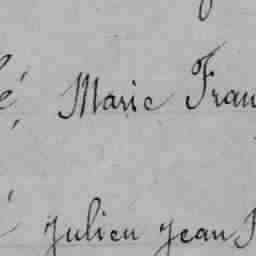 é, Marie Fran
Julien Jean